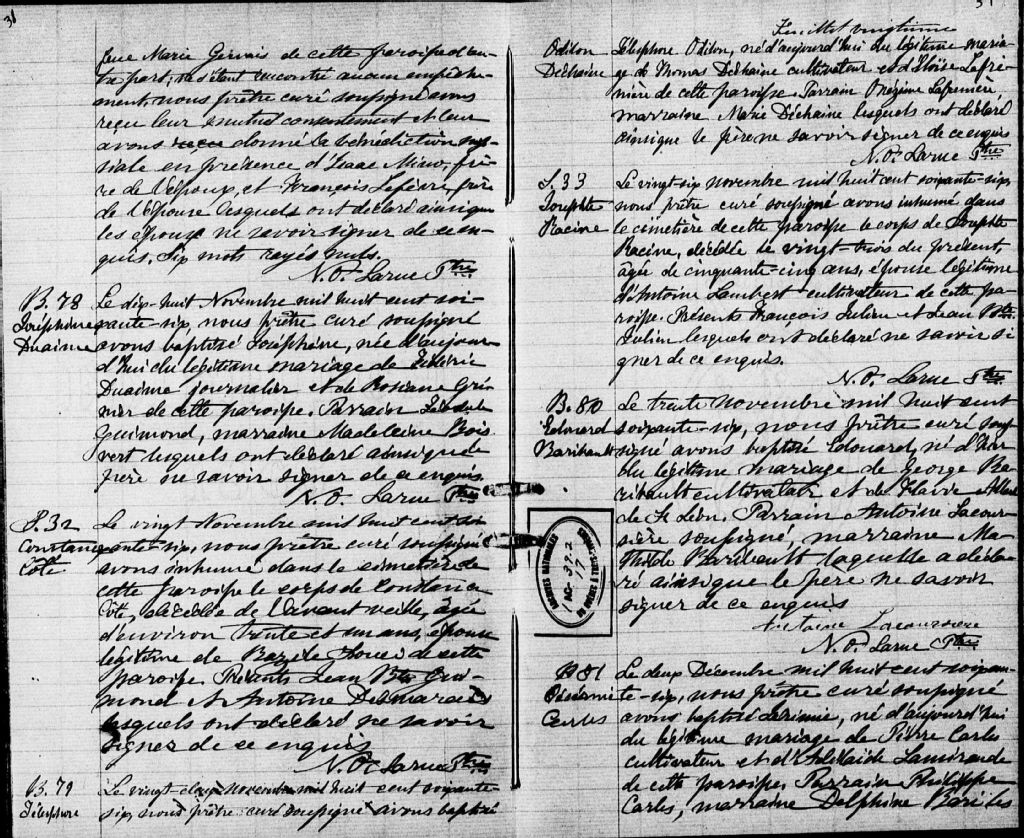 31
feue Marie Gervais de cette paroisse d'au-
tre part; ne s'étant rencontré aucun empêche-
ment, nous prêtre curé soussigné avons
reçu leur mutuel consentement et leur
avons donné la bénédiction nup-
tiale en présence d'Isaac frè-
re de l'époux, et François Lefèvre, frère
de l'épouse lesquels ont déclaré ainsi que
les époux ne savoir signer de ce en-
quis. Six mots rayés nuls.
N. O. Larue Ptre
B. 78
Joséphine
Duaime
Le dix-huit Novembre mil huit cent soi-
xante-six, nous prêtre curé soussigné
avons baptisé Joséphine, née d'aujour-
d'hui du légitime mariage de
Duaime journalier et de Gri-
nier de cette paroisse. Parrain
Guimond, marraine Madeleine Bois
vert lesquels ont déclaré ainsi que le
père ne savoir signer de ce enquis.
N. O. Larue Ptre
S. 32
Constance
Côté
Le vingt Novembre mil huit cent soi
xante-six, nous prêtre curé soussigné
avons inhumé dans le cimetière de
cette paroisse le corps de Constance
Côté, décédée de l'avant veille, âgée
d'environ trente et un ans, épouse
légitime de Bazile de cette
paroisse. Présents Jean Bte Gui-
mond et Antoine Desmarais
lesquels ont déclaré ne savoir
signer de ce enquis
N. O. Larue Ptre
B. 79
Télesphore
Le vingt Novembre mil huit cent soixante-
six, nous prêtre curé soussigné avons baptisé
Feuillet vingtième
Odilon
Dechaine
Télesphore Odilon, né d'aujourd'hui du légitime maria-
ge de Thomas Dechaine cultivateur et d'Eloise Lafre-
nière de cette paroisse. Parrain Onésime Lafrenière,
marraine Marie Dechaine lesquels ont déclaré
ainsi que le père ne savoir signer de ce enquis
N. O. Larue Ptre
S. 33
Josephte
Racine
Le vingt-six novembre mil huit cent soixante-six,
nous prêtre curé soussigné avons inhumé dans
le cimetière de cette paroisse le corps de Josephte
Racine, décédée le vingt-trois du présent,
âgée de cinquante-cinq ans, épouse légitime
d'Antoine Lambert cultivateur de cette pa-
roisse. Présents François Julien et Jean Bte
Julien lesquels ont déclaré ne savoir si
gner de ce enquis.
N. O. Larue Ptre
B. 80
Edouard
Baribault
Le trente novembre mil huit cent
soixante-six, nous prêtre curé sous
signé avons baptisé Edouard, né d'hier
du légitime mariage de George Ba-
ribault cultivateur et de Flavie Allard
de St Léon. Parrain Antoine Lacour-
sière soussigné, marraine Ma-
thilde Barribault laquelle a décla-
ré ainsi que le père ne savoir
signer de ce enquis
Antoine Lacoursiere
N. O. Larue Ptre
ARCHIVES NATIONALES
1 AO 372
17
B 81
Carles
Le deux Décembre mil huit cent soixan-
te-six, nous prêtre curé soussigné
avons baptisé né d'aujourd'hui
du légitime mariage de Pierre Carles
cultivateur et d'Adelaide Lamirande
de cette paroisse. Parrain Philippe
Carles, marraine Delphine Baril les